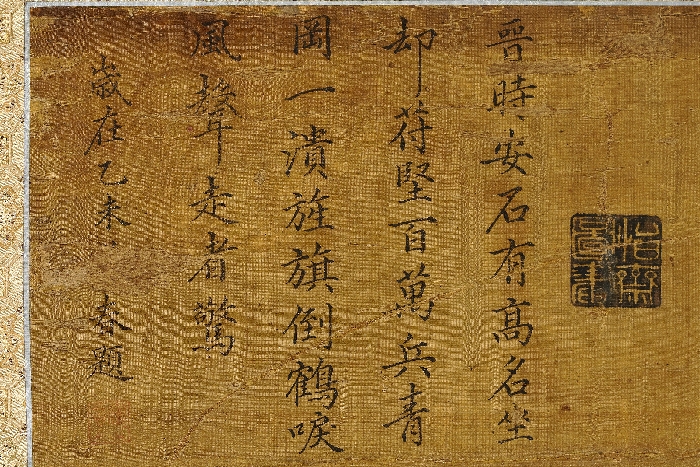 晉時安石有高名坐
却苻堅百萬兵青
岡一潰旌旗倒鶴唳
風聲走者驚
歲在乙未 春題